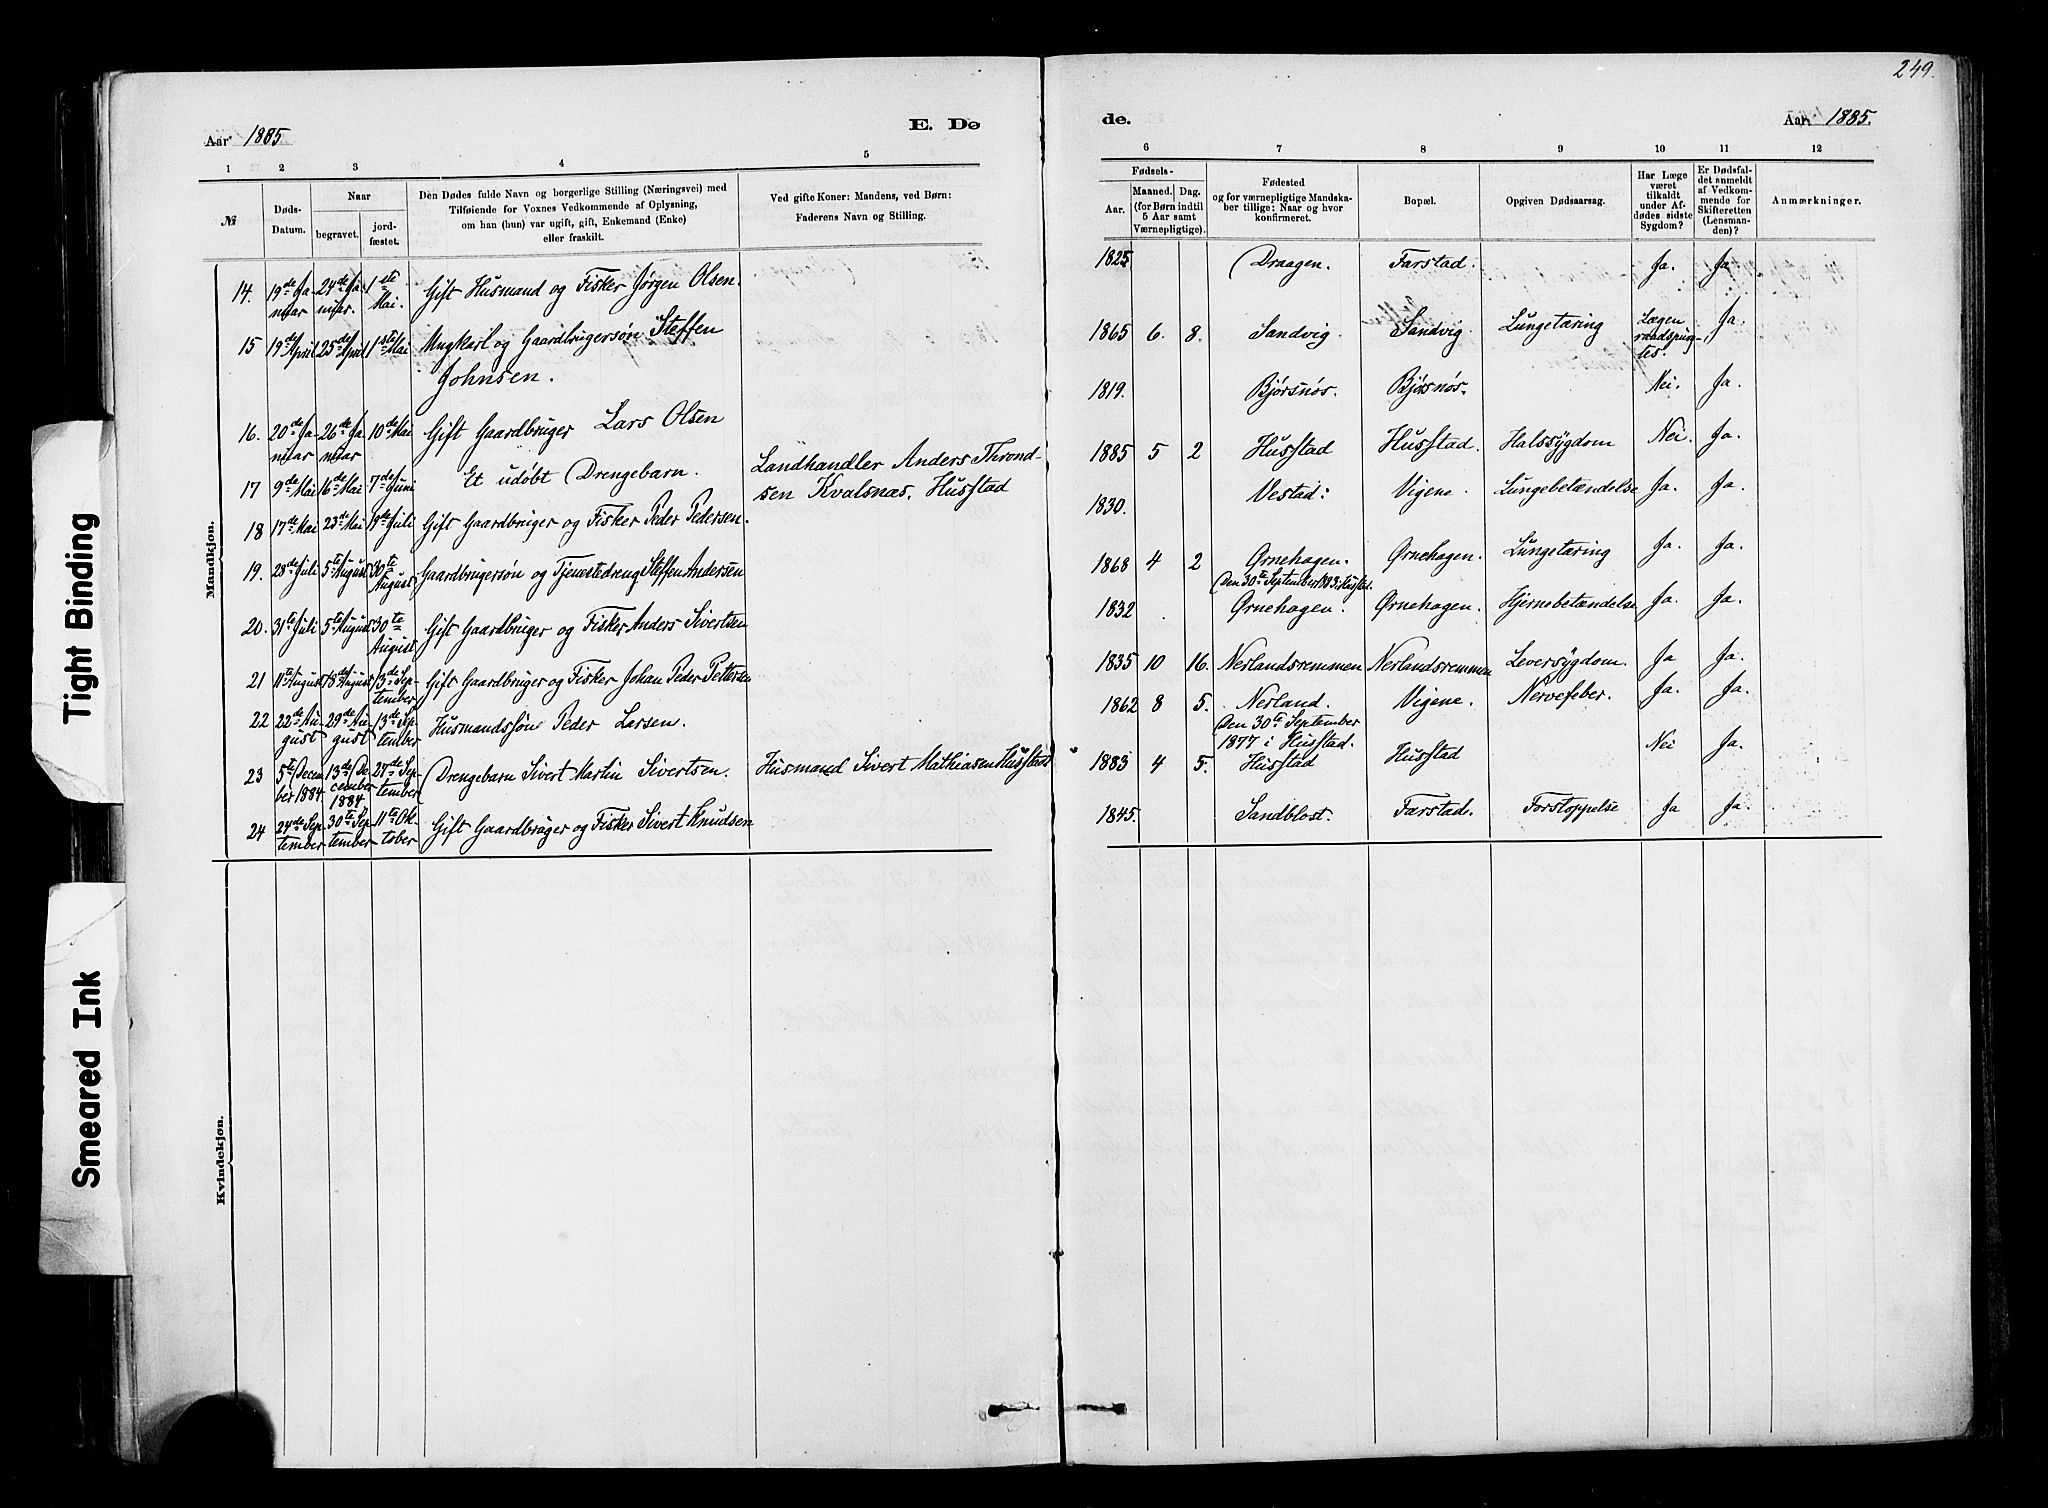 249.
Aar 1885
E. Dø
de.
Aar 1885.
1 2 3 4 5
6 7 8 9 10 11 12
№
Døds-Datum.
Naar
begravet.
jordfæstet.
Den Dødes fulde Navn og borgerlige Stilling (Næringsvei) med
Tilføiende for Voxnes Vedkommende af Oplysning,
om han (hun) var ugift, gift, Enkemand (Enke)
eller fraskilt.
Ved gifte Koner: Mandens, ved Børn:
Faderens Navn og Stilling.
Fødsels-
Aar.
Maaned. Dag.
(for Børn indtil
5 Aar samt
Værnepligtige).
Fødested
og for værnepligtige Mandska-
ber tillige: Naar og hvor
konfirmeret.
Bopæl.
Opgiven Dødsaarsag.
Har Læge
været
tilkaldt
under Af-
dødes sidste
Sygdom?
Er Dødsfal-
det anmeldt
af Vedkom-
mende for
Skifteretten
(Lensman-
den)?
Anmærkninger.
Mandkjøn.
14. 19de Januar 24de Januar. 1ste Mai. Gift Husmand og Fisker Jørgen Olsen. 1825 Draagen. Farstad. Ja. Ja.
15 19de April 25de April 1ste Mai Ungkarl og Gaardbrugersøn Steffen Johnsen. 1865 6. 8. Sandvig. Sandvig. Lungetæring Lægen raadspurgtes. Ja.
16. 20de Januar 26de Januar 10de Mai Gift Gaardbruger Lars Olsen 1819. Bjørsnøs. Bjørsnøs. Nei. Ja.
17 9de Mai 16de Mai 7de Juni Et udøbt Drengebarn. Landhandler Anders Throndsen Kvalsnæs, Husstad 1885 5 2 Husstad Husstad. Halssygdom Nei. Ja.
18 17de Mai 23de Mai 19de Juli Gift Gaardbruger og Fisker Peder Pedersen. 1830. Vestad. Vigene. Lungebetændelse Ja. Ja.
19. 28de Juli 5te August 30te August Gaardbrugersøn og Tjenestedreng Steffen Andersen 1868 4 2 Ørnehagen. Den 30te September Husstad. Ørnehagen. Lungetæring Ja. Ja.
20. 31te Juli 5te August 30te August Gift Gaardbruger og Fisker Anders Sivertsen 1832 Ørnehagen. Ørnehagen. Hjernebetændelse Ja. Ja.
21 11te August 18de August 13de September Gift Gaardbruger og Fisker Johan Peder Pettersen 1835 10 16. Nerlandsremmen Nerlandsremmen Leversygdom. Ja Ja.
22 22de August 29de August 13de September Husmandssøn Peder Larsen. 1862 8 5. Nerland. Den 30te September 1877 i Husstad. Vigene. Nervefeber. Ja. Ja.
23 5te December 1884 13de December 1884 27de September Drengebarn Sivert Martin Sivertsen. Husmand Sivert Mathiasen Husstad 1883 4 5. Husstad Husstad Nei Ja.
24 24de September 30te September 11te Oktober Gift Gaardbruger og Fisker Sivert Knudsen 1845. Sandblost. Farstad. Forstoppelse Ja Ja.
Kvindekjøn.
Tight Binding
Smeared Ink